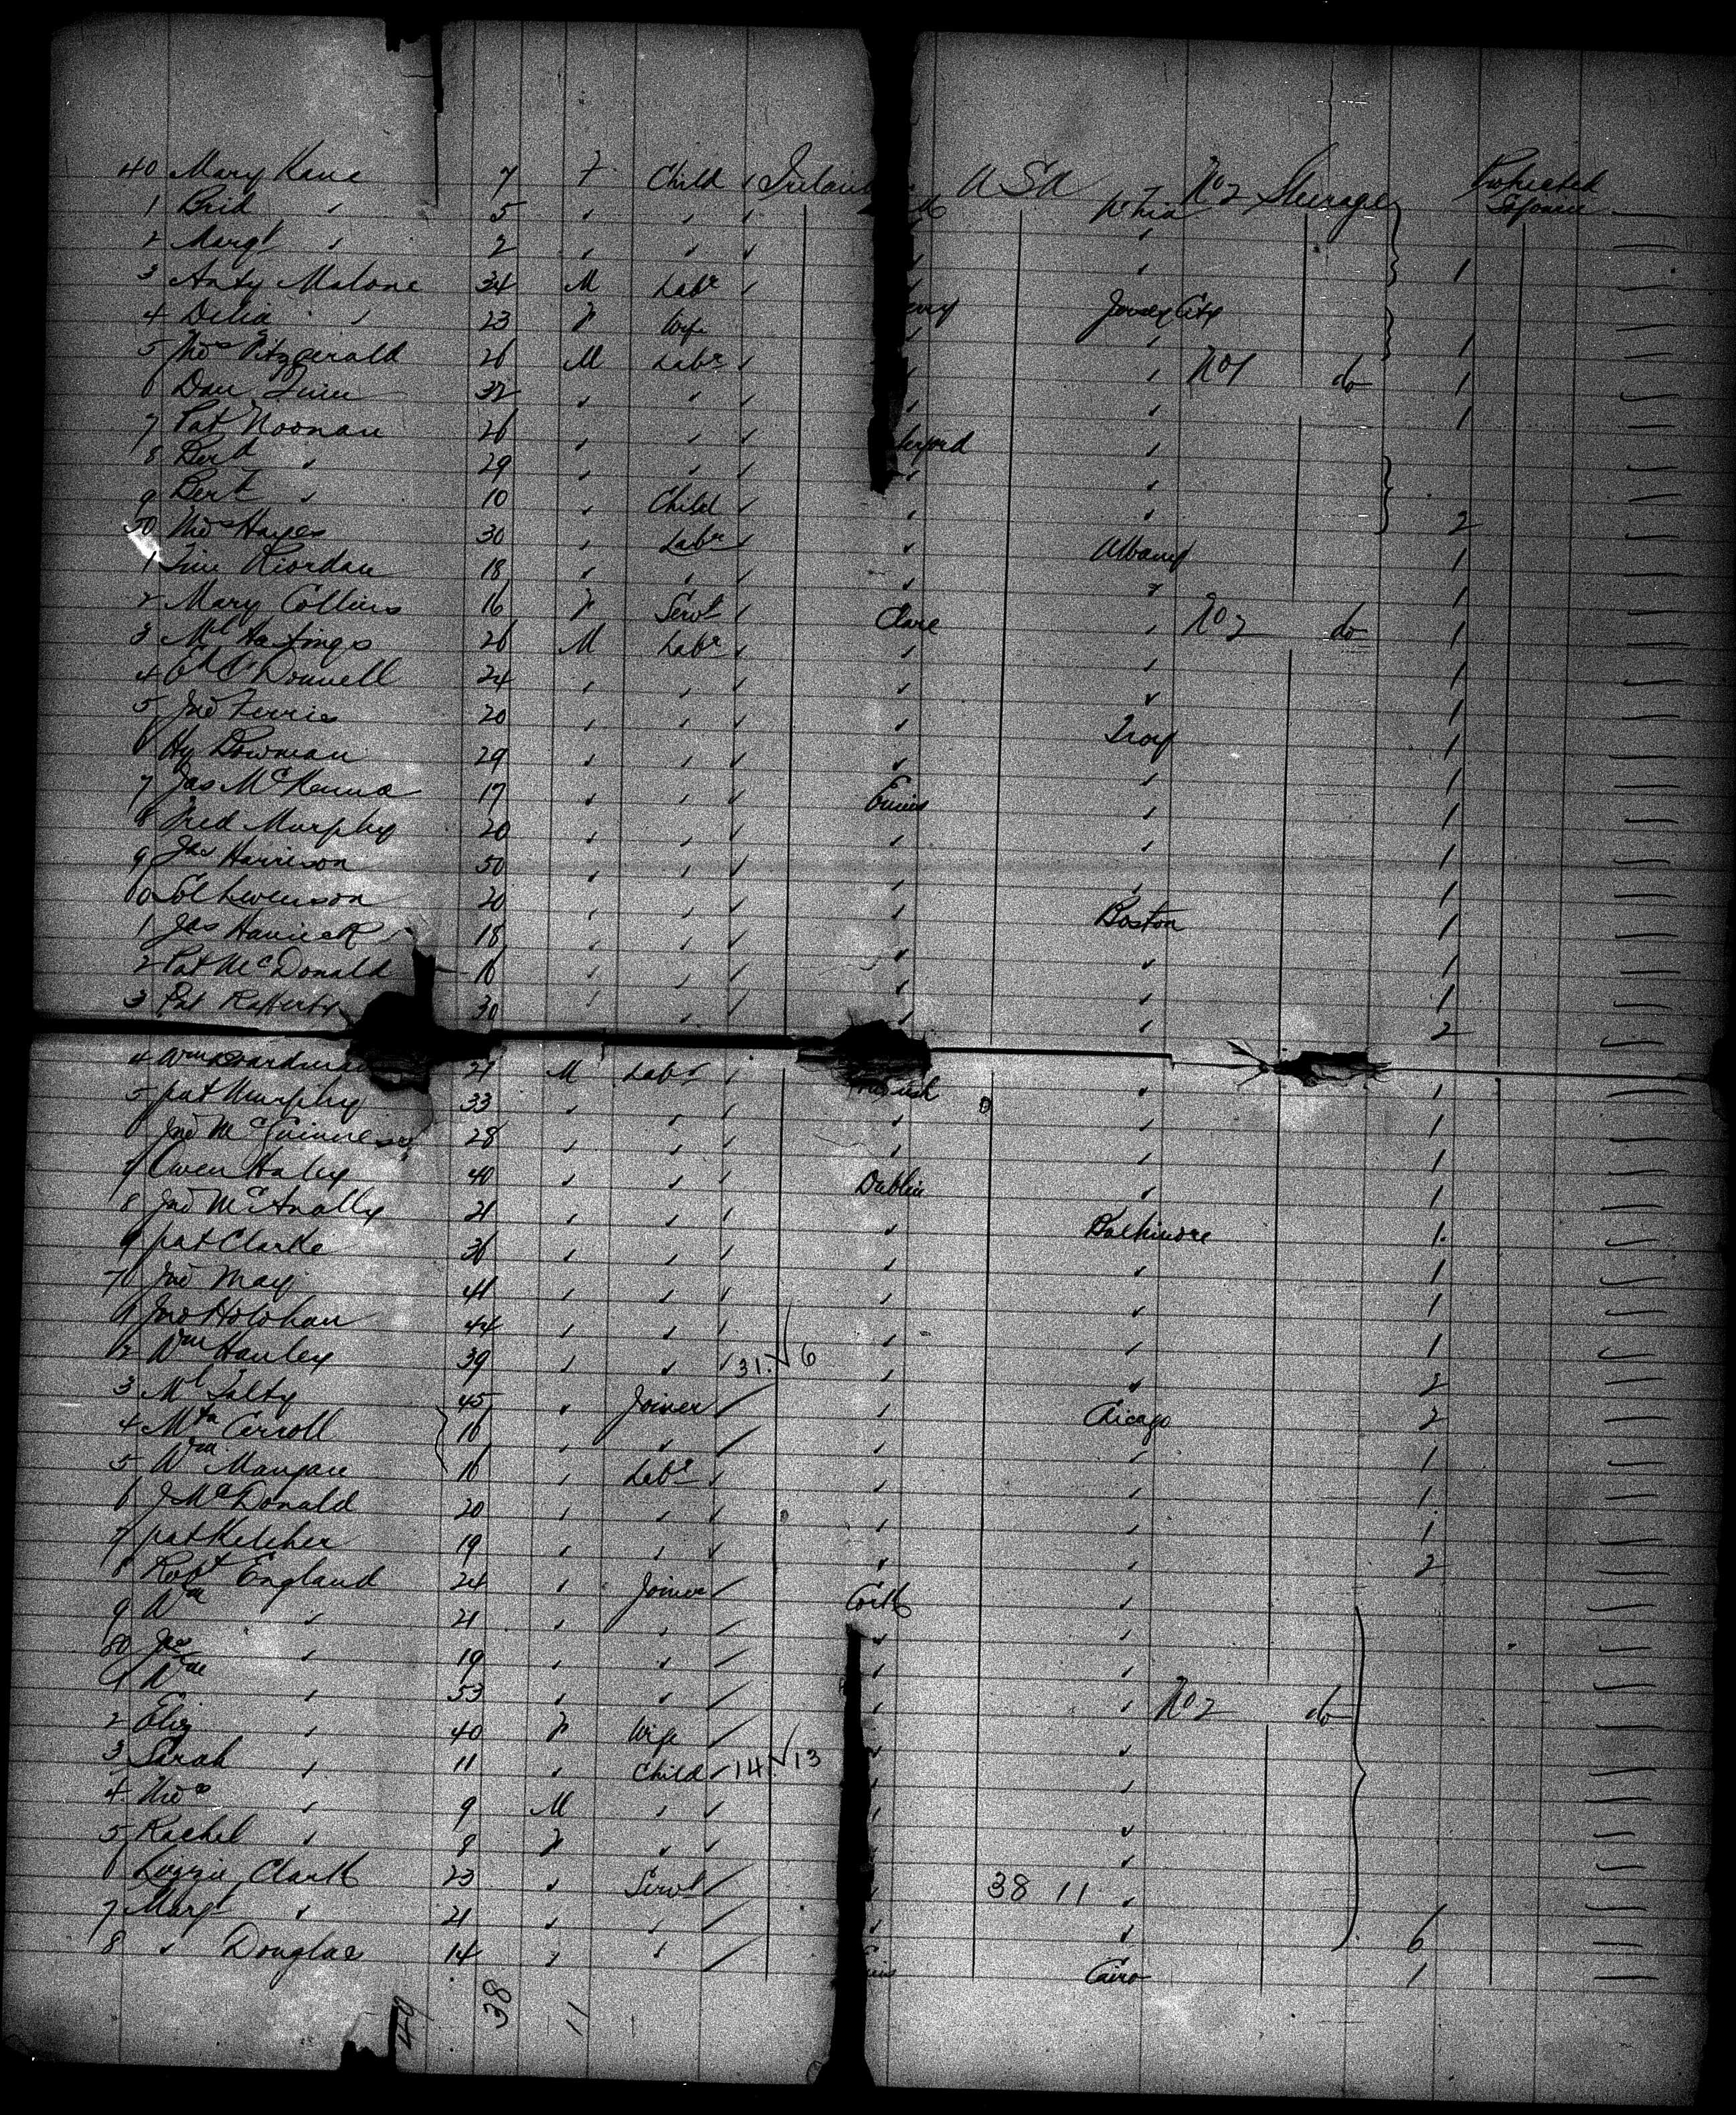 40 Mary Kane 7 F Child ✓ Ireland U S A Phia No 2 Steerage Protracted Sojourn —
1 Brid " 5 " " "
2 Margt " 2 " " " 1 —
3 Anty Malone 34 M Labr " Jersey City —
4 Delia " 23 F Wife " 1 —
5 Thos Fitzgerald 26 M Labr " " No 1 do 1 —
6 Dan Quin 32 " " " " 1 —
7 Pat Noonan 26 " " " " —
8 29 " " " " —
9 " 10 " Child " " 2 —
50 Thos Hayes 30 " Labr " Albany 1 —
1 Tim Riordan 18 " " " " 1 —
2 Mary Collins 16 F Servt " Clare " No 2 do 1 —
3 Ml Hastings 26 M Labr " " " 1 —
4 O'Donnell 24 " " " " " 1 —
5 Jno Ferris 20 " " " " Troy 1 —
6 Hy Bowman 29 " " " " " 1 —
7 Jas McKenna 17 " " " " 1 —
8 Fred Murphy 20 " " " " " 1 —
9 Jas Harrison 50 " " " " " 1 —
60 Sol Levenson 20 " " " " Boston 1 —
1 Jas 18 " " " " " 1 —
2 Pat McDonald 16 " " " " " 1 —
3 Pat Rafferty 30 " " " " " 2 —
4 Wm 21 M Labr " " 1 —
5 pat Murphy 33 " " " " " 1 —
6 Jno McGuinness 28 " " " " " 1 —
7 Owen Haley 40 " " " Dublin " 1 —
8 Jno McAnally 21 " " " " Baltimore 1 —
9 pat Clarke 36 " " " " " 1 —
70 Jno May 41 " " " " " 1 —
1 Jno Holohan 44 " " " " " 1 —
2 Wm Hanley 39 " " " 31 ✓ 6 " " 2 —
3 Ml 45 " Joiner " " Chicago 2 —
4 Carroll 16 " " " " " 1 —
5 Wm Mangan 16 " Labr " " " 1 —
6 J McDonald 20 " " " " " 1 —
7 pat Kelcher 19 " " " " " 2 —
8 Robt England 24 " Joiner " Cork " —
9 Wm " 21 " " " " " —
80 Jas " 19 " " " " " —
1 Wm " 53 " " " " " No 2 do —
2 Eliz " 40 F Wife " " " —
3 Sarah " 11 " Child " 14 ✓ 13 " " —
4 Thos " 9 M " " " " —
5 Rachel " 8 F " " " " —
6 Lizzie Clark 23 " Servt " " 38 11 " —
7 Margt " 21 " " " " " 6 —
8 " Douglas 14 " " " Cairo 1 —
49 38 11